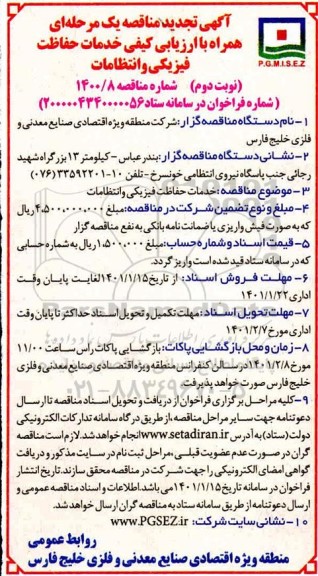 آگهی تجدید مناقصه یک مرحله‌ای
همراه با ارزیابی کیفی خدمات حفاظت
فیزیکی و انتظامات
P.G.M.I.S.E.Z
(نوبت دوم) شماره مناقصه ۱۴۰۰/۸
(شماره فراخوان در سامانه ستاد ۲۰۰۰۰۰۴۳۴۰۰۰۰۰۵۶)
۱-نام دستگاه مناقصه گزار: شرکت منطقه ویژه اقتصادی صنایع معدنی و
فلزی خلیج فارس
۲-نشانی دستگاه مناقصه گزار: بندرعباس - کیلومتر ۱۳ بزرگراه شهید
رجائی جنب پاسگاه نیروی انتظامی خونسرخ - تلفن ۱۰-۳۳۵۹۲۲۰۱ (۰۷۶)
۳-موضوع مناقصه: خدمات حفاظت فیزیکی و انتظامات
۴-مبلغ و نوع تضمین شرکت در مناقصه: مبلغ ۴،۵۰۰،۰۰۰،۰۰۰ ریال
که به صورت فیش واریزی یا ضمانت نامه بانکی به نفع مناقصه گزار
۵-قیمت اسناد و شماره حساب: مبلغ ۱،۵۰۰،۰۰۰ ریال به شماره حسابی
که در سامانه ستاد قید شده است واریز گردد.
۶-مهلت فروش اسناد: از تاریخ ۱۴۰۱/۱/۱۵ لغایت پایان وقت
اداری ۱۴۰۱/۱/۲۲
۷-مهلت تحویل اسناد: مهلت تکمیل و تحویل اسناد حداکثر تا پایان وقت
اداری مورخ ۱۴۰۱/۲/۷
۸-زمان و محل بازگشایی پاکات: بازگشایی پاکات راس ساعت ۱۱/۰۰
مورخ ۱۴۰۱/۲/۸ در سالن کنفرانس منطقه ویژه اقتصادی صنایع معدنی و فلزی
خلیج فارس صورت خواهد پذیرفت
۹-کلیه مراحل برگزاری فراخوان از دریافت و تحویل اسناد مناقصه تا ارسال
دعوتنامه جهت سایر مراحل مناقصه، از طریق درگاه سامانه تدارکات الکترونیکی
دولت (ستاد) به آدرس www.setadiran.ir انجام خواهد شد. لازم است مناقصه
گران در صورت عدم عضویت قبلی، مراحل ثبت نام در سایت مذکور و دریافت
گواهی امضای الکترونیکی را جهت شرکت در مناقصه محقق سازند. تاریخ انتشار
فراخوان در سامانه تاریخ ۱۴۰۱/۱/۱۵ می باشد. اطلاعات و اسناد مناقصه عمومی و
ارسال دعوتنامه از طریق سامانه ستاد به مناقصه گران ارسال خواهد شد.
۱۰-نشانی سایت شرکت: www.PGSEZ.ir
روابط عمومی
منطقه ویژه اقتصادی صنایع معدنی و فلزی خلیج فارس